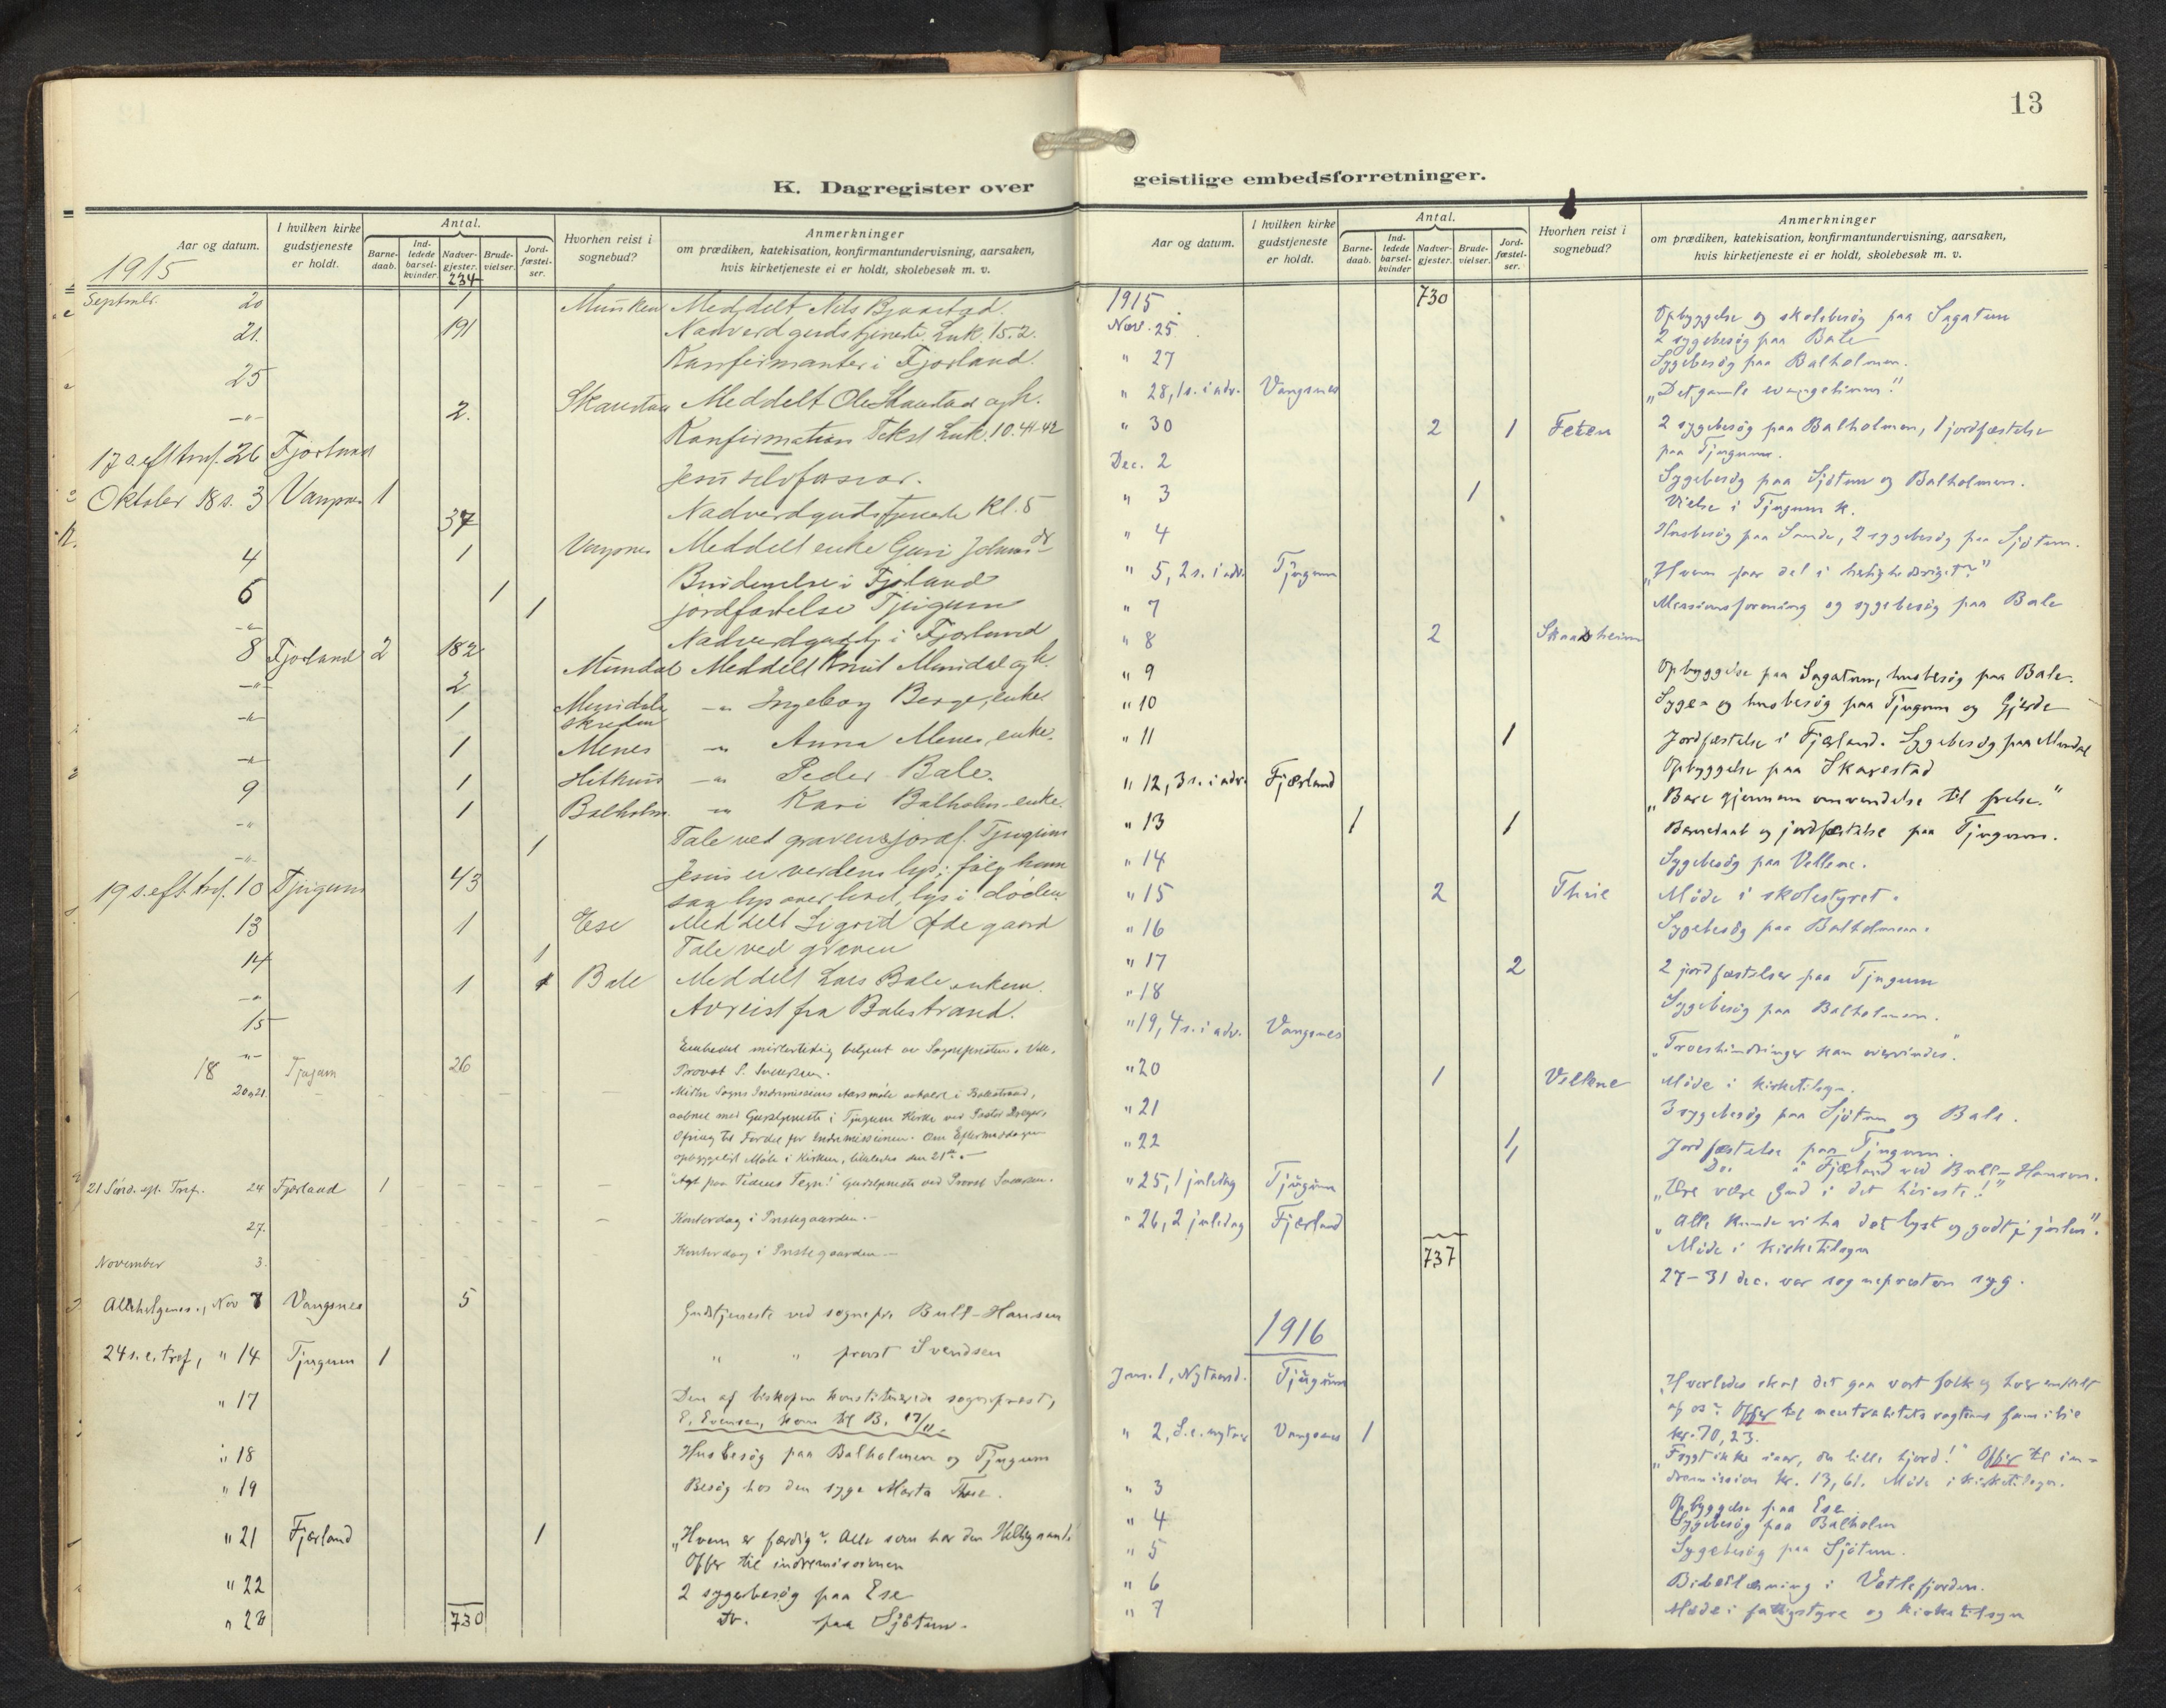 13
K. Dagregister over
geistlige embedsforretninger.
Aar og datum.
I hvilken kirke gudstjeneste er holdt.
Antal.
Barne-daab.
Ind-ledede barsel-kvinder.
Nadver-gjester.
Brude-vielser.
Jord-fæstel-ser.
Hvorhen reist i sognebud?
Anmerkninger
om prædiken, katekisation, konfirmantundervisning, aarsaken,
hvis kirketjeneste ei er holdt, skolebesøk m. v.
1915
234
Septmbr. 20 1 Meddelt Nils
21. 191 Nadverdgudstjeneste Luk. 15.2.
25 Konfirmanter i Fjorland.
-"- 2. Meddelt Ole Skarstad og h.
17 s. eft. tref. 26 Fjorland Konfirmation Tekst Luk. 10.41-42
Oktober 18 s. 3 Vangsnes 1
37 Nadverdgudstjeneste Kl. 5
4 1 Vangsnes Meddelt enke Guri
6 1 Brudevielse i Fjorland
-"- 1 jordfæstelse Tjugum
8 Fjorland 2 182 Nadverdgudstj. i Fjorland
-"- 2 Mundal Meddelt Knut Mundal og h.
-"- 1 Mundalsskreden -"- Ingeborg Berge, enke
-"- 1 Menes -"- Anna Menes, enke.
9 1 -"- Peder Bale.
-"- 1 Balholm -"- Kari Balholm enke.
-"- 1 Tale ved graven & jordf. Tjugum
19 s. eft. tref. 10 Tjugum 43 Jesus er verdens lys; følg ham
saa lys over livet, lys i døden.
13 1 Ese Meddelt Sigrid Ødegaard
14 1 Tale ved graven
-"- 1 Bale Meddelt Lars Bale
15 Avreist fra Balestrand.
-"- Embedet midlertidig betjent av Sognepresten i Vik,
18 Tjugum 26 Provst S. Svendsen.
20 og 21. Midtre Sogns Indremissions Aarsmøte avholdt i Balestrand,
aabnet med Gudstjeneste i Tjugum Kirke ved Pastor
Ofring til Fordel for Indremissionen. Om Eftermiddagen
opbyggeligt Møte i Kirken, likeledes den 21de. —
21 Sønd. eft. Tref. 24 Fjærland 1 "Agt paa Tidens Tegn!" Gudstjeneste ved Provst Svendsen.
27. Kontordag i Prestegaarden. —
November 3. Kontordag i Prestegaarden —
Allehelgens., Nov 7 Vangsnes 5 Gudstjeneste ved sognepr. Bull-Hansen
24 s. e. tref, " 14 Tjugum 1 " " provst Svendsen
" 17 Den af biskopen konstituerede sogneprest,
E. Evensen, kom til B. 17/11.
" 18 Husbesøg paa Balholmen og Tjugum
" 19 Besøg hos den syge Marta Thue.
" 21 Fjærland 1 "Hvem er færdig? Alle som har den Helligaand."
Offer til indremissionen
" 22 2 sygebesøg paa Ese
" 23 730 do. paa Sjøtun.
Aar og datum.
I hvilken kirke gudstjeneste er holdt.
Antal.
Barne-daab.
Ind-ledede barsel-kvinder
Nadver-gjester.
Brude-vielser.
Jord-fæstel-ser.
Hvorhen reist i sognebud?
Anmerkninger
om prædiken, katekisation, konfirmantundervisning, aarsaken,
hvis kirketjeneste ei er holdt, skolebesøk m. v.
1915 730
Nov. 25 Opbyggelse og skolebesøg paa Sagatun
2 sygebesøg paa Bale
" 27 Sygebesøg paa Balholmen.
" 28, 1 s. i adv. Vangsnes "Det gamle evangelium!"
" 30 2 1 Feten 2 sygebesøg paa Balholmen, 1 jordfæstelse
paa Tjugum.
Dec. 2 Sygebesøg paa Sjøtun og Balholmen.
" 3 1 Vielse i Tjugum k.
" 4 Husbesøg paa Sande, 2 sygebesøg paa Sjøtun.
" 5, 2 s. i adv. Tjugum "Hvem faar del i herlighedsriget?"
" 7 Missionsforening og sygebesøg paa Bale
" 8 2 Skaasheim
" 9 Opbyggelse paa Sagatun, husbesøg paa Bale.
" 10 Syge- og husbesøg paa Tjugum og Gjerde
" 11 1 Jordfæstelse i Fjærland. Sygebesøg paa Mundal
Opbyggelse paa Skarestad
" 12, 3 s. i adv. Fjærland "Bare gjennem omvendelse til frelse."
" 13 1 1 Barnedaab og jordfæstelse paa Tjugum.
" 14 Sygebesøg paa Vellene.
" 15 2 Thue Møde i skolestyret.
" 16 Sygebesøg paa Balholmen.
" 17 2 2 jordfæstelser paa Tjugum
" 18 Sygebesøg paa Balholmen.
" 19, 4 s. i adv. Vangsnes "Troeshindringer kan overvindes".
" 20 1 Vellene Møde i kirketilsyn.
" 21 3 sygebesøg paa Sjøtun og Bale.
" 22 1 Jordfæstelse paa Tjugum.
1 Do. i Fjærland ved Bull-Hansen.
" 25, 1 juledag Tjugum "Ære være Gud i det høieste!"
" 26, 2 juledag Fjærland "Alle kunde vi ha det lyst og godt i julen".
737 Møde i kirketilsyn
27-31 dec. var sognepresten syg.
1916
Jan. 1, Nytaarsd. Tjugum "Hvorledes skal det gaa vort folk og hver enkelt
af os? Offer til neutralitetsvagtens familie
kr. 70,23.
" 2, S. e. nytaar Vangsnes 1 "Frygt ikke , du lille hjord!" Offer til in-
dremission kr. 13,61. Møde i kirketilsyn.
" 3 Opbyggelse paa Ese
" 4 Sygebesøg paa Balholm
" 5 Sygebesøg paa Sjøtun.
" 6 Bibellæsning i Vetlefjorden.
" 7 Møde i fattigstyre og kirketilsyn